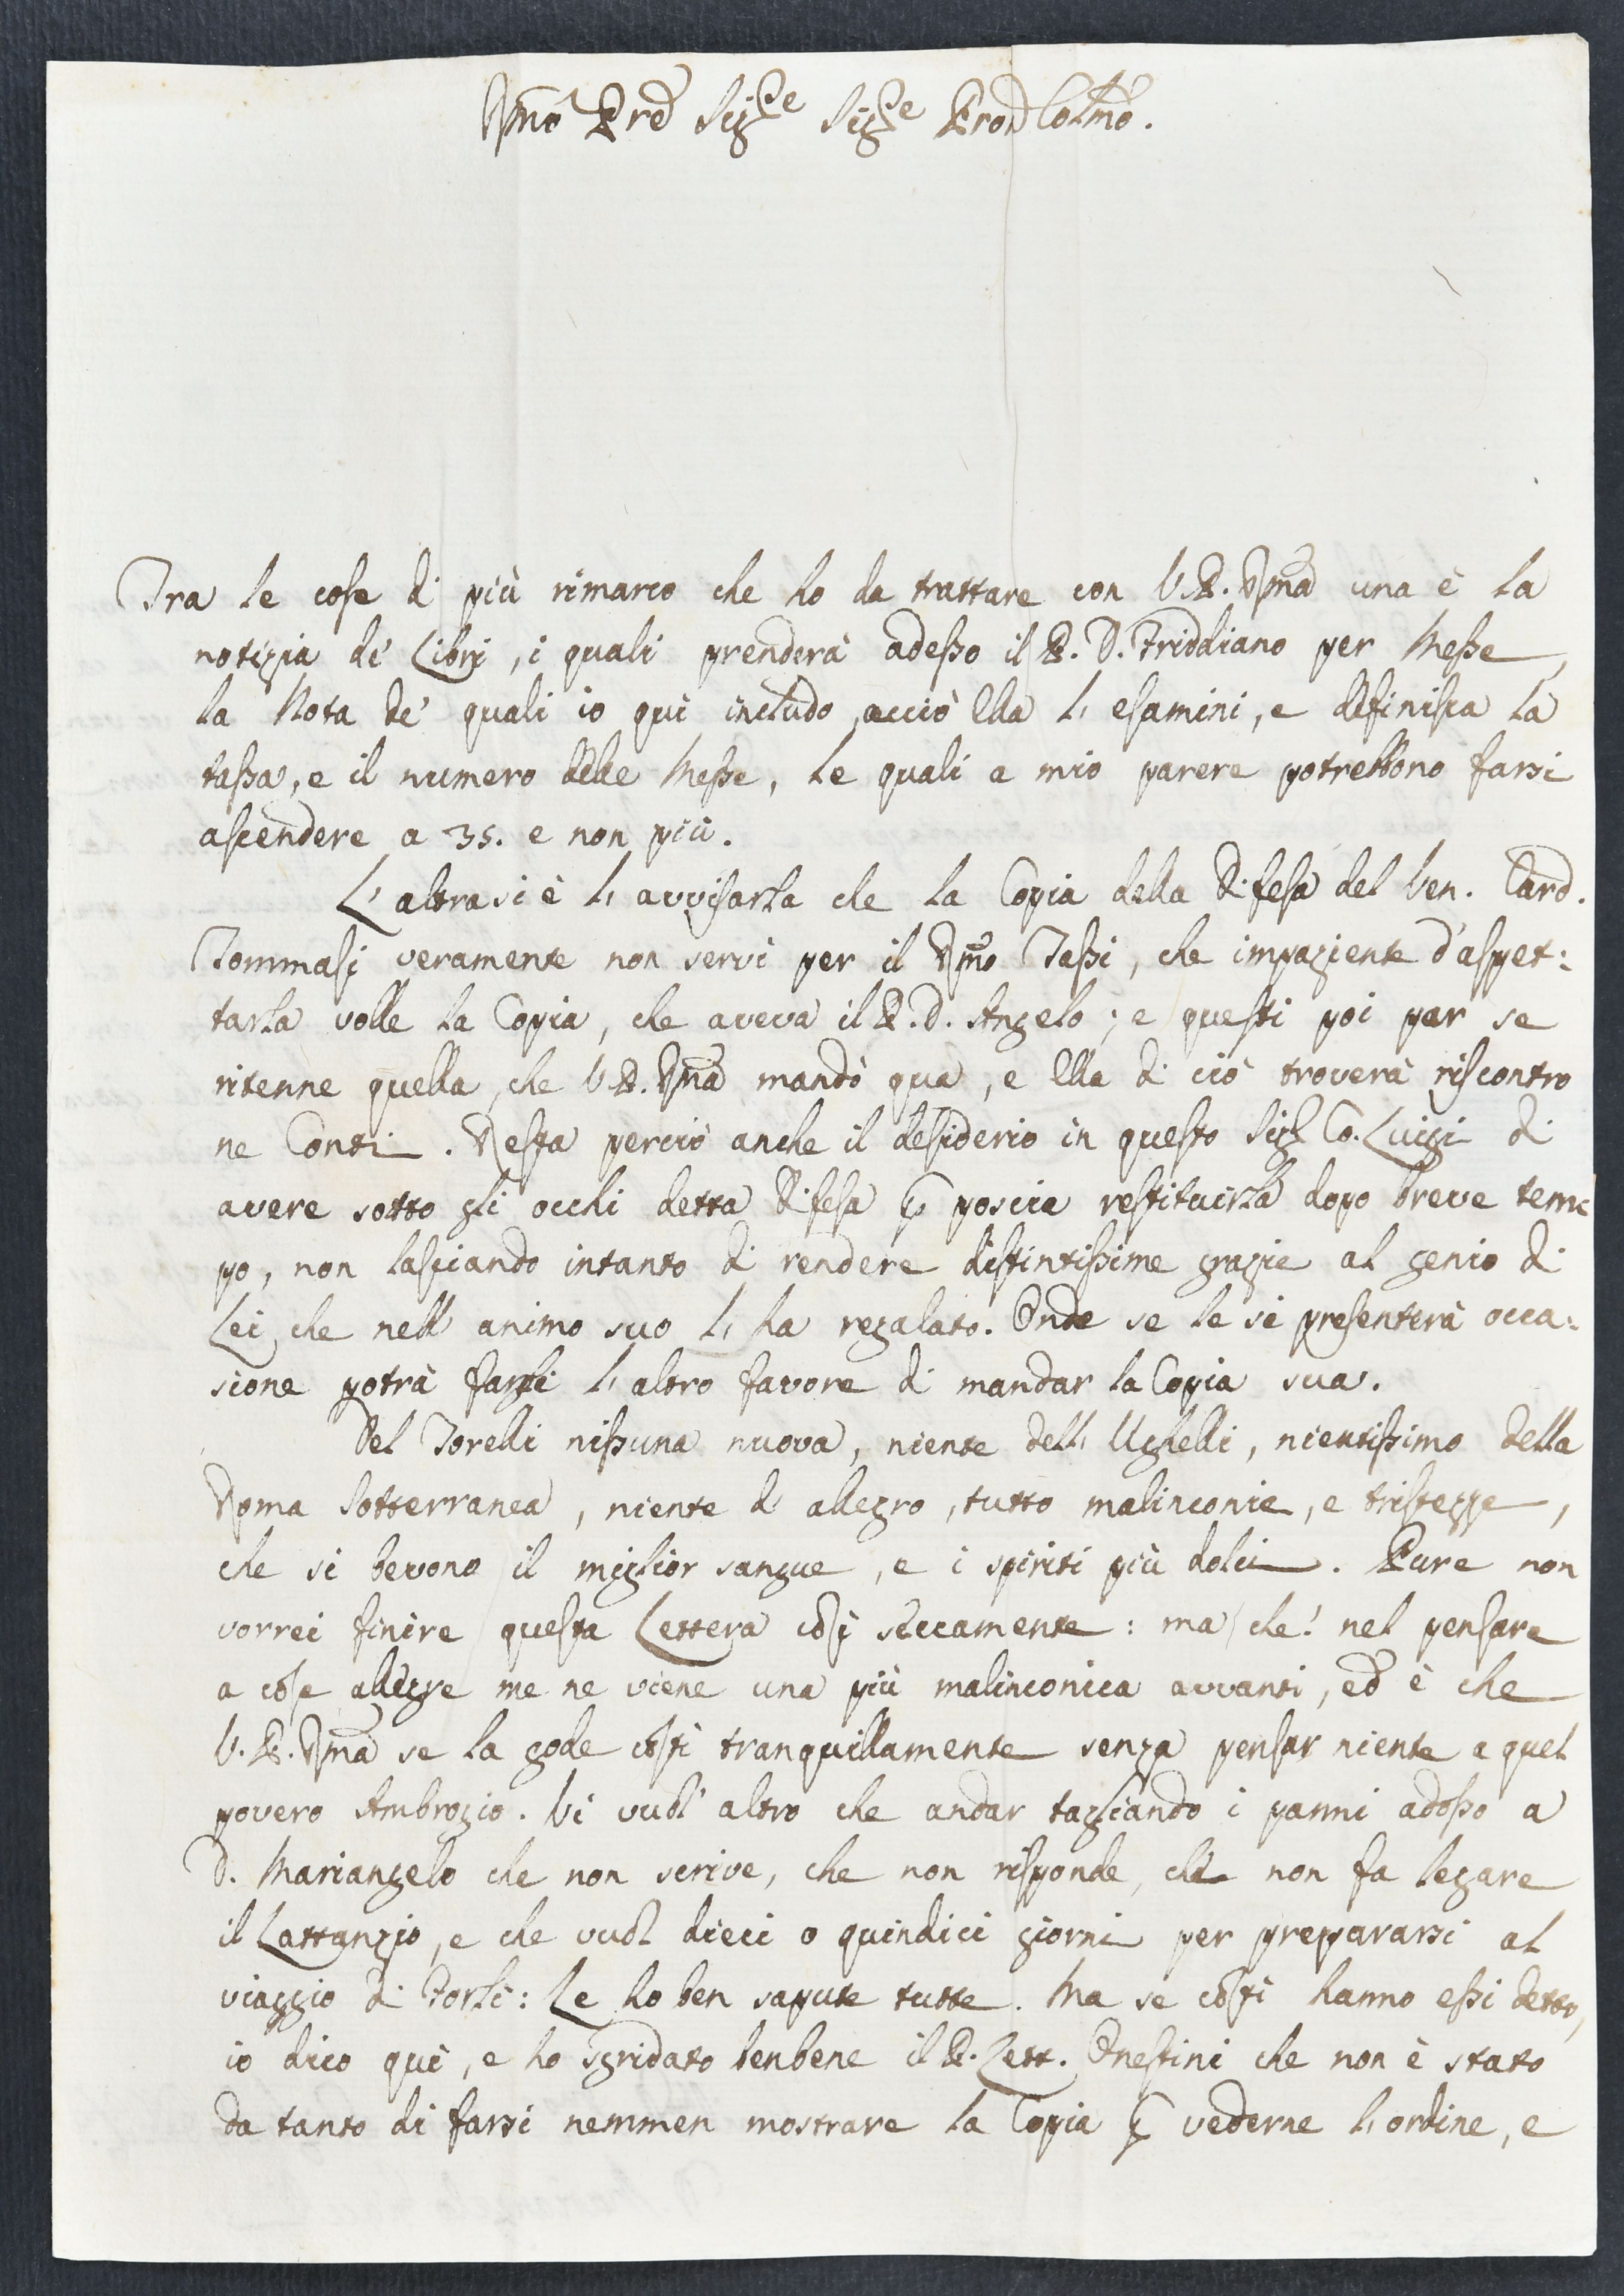 Rmo Pre Sigre Sigre Pron Colmo.
Tra le cose di più rimarco che ho da trattare con V. P. Rma una è la
notizia de' Libri, i quali prenderà adesso il P. D. Friddiano per Messe,
la Nota de' quali io qui includo acciò Ella l' esamini, e definisca la
tassa, e il numero delle Messe, le quali a mio parere potrebbono farsi
ascendere a 35. e non più.
L' altra si è l' avvisarla che la Copia della Difesa del Ven. Card.
Tommasi veramente non servì per il Rmo Tassi, che impaziente d'aspet:
tarla volle la Copia, che aveva il P. D. Angelo; e questi poi per se
ritenne quella, che V. P. Rma mandò qua, e Ella di ciò troverà riscontro
ne Conti. Resta perciò anche il desiderio in questo Sigr Co. Luigi di
avere sotto gli occhi detta Difesa p poscia restituirla dopo breve tem:
po, non lasciando intanto di rendere distintissime grazie al genio di
Lei, che nell' animo suo l' ha regalato. Onde se le si presenterà occa:
sione potrà fargli l' altro favore di mandar la Copia sua.
Del Torelli nissuna nuova, niente dell' Ughelli, nientissimo della
Roma Sotterranea, niente di allegro, tutto malinconie, e tristezze,
che si bevono il miglior sangue, e i spiriti più dolci. Pure non
vorrei finire questa Lettera così seccamente: ma che! nel pensare
a cose allegre me ne viene una più malinconica avvanti, ed è che
V. P. Rma se la gode costì tranquillamente senza pensar niente a quel
povero Ambrogio. Vi vuol' altro che andar tagliando i panni adosso a
D. Mariangelo che non scrive, che non risponde, che non fa legare
il Lattanzio, e che vuol dieci o quindici giorni per prepararsi al
viaggio di Forlì: Le ho ben sapute tutte. Ma se costì hanno essi detto,
io dico quì, e ho sgridato benbene il P. Lett. Onestini che non è stato
da tanto di farsi nemmen mostrare la Copia p vederne l' ordine, e